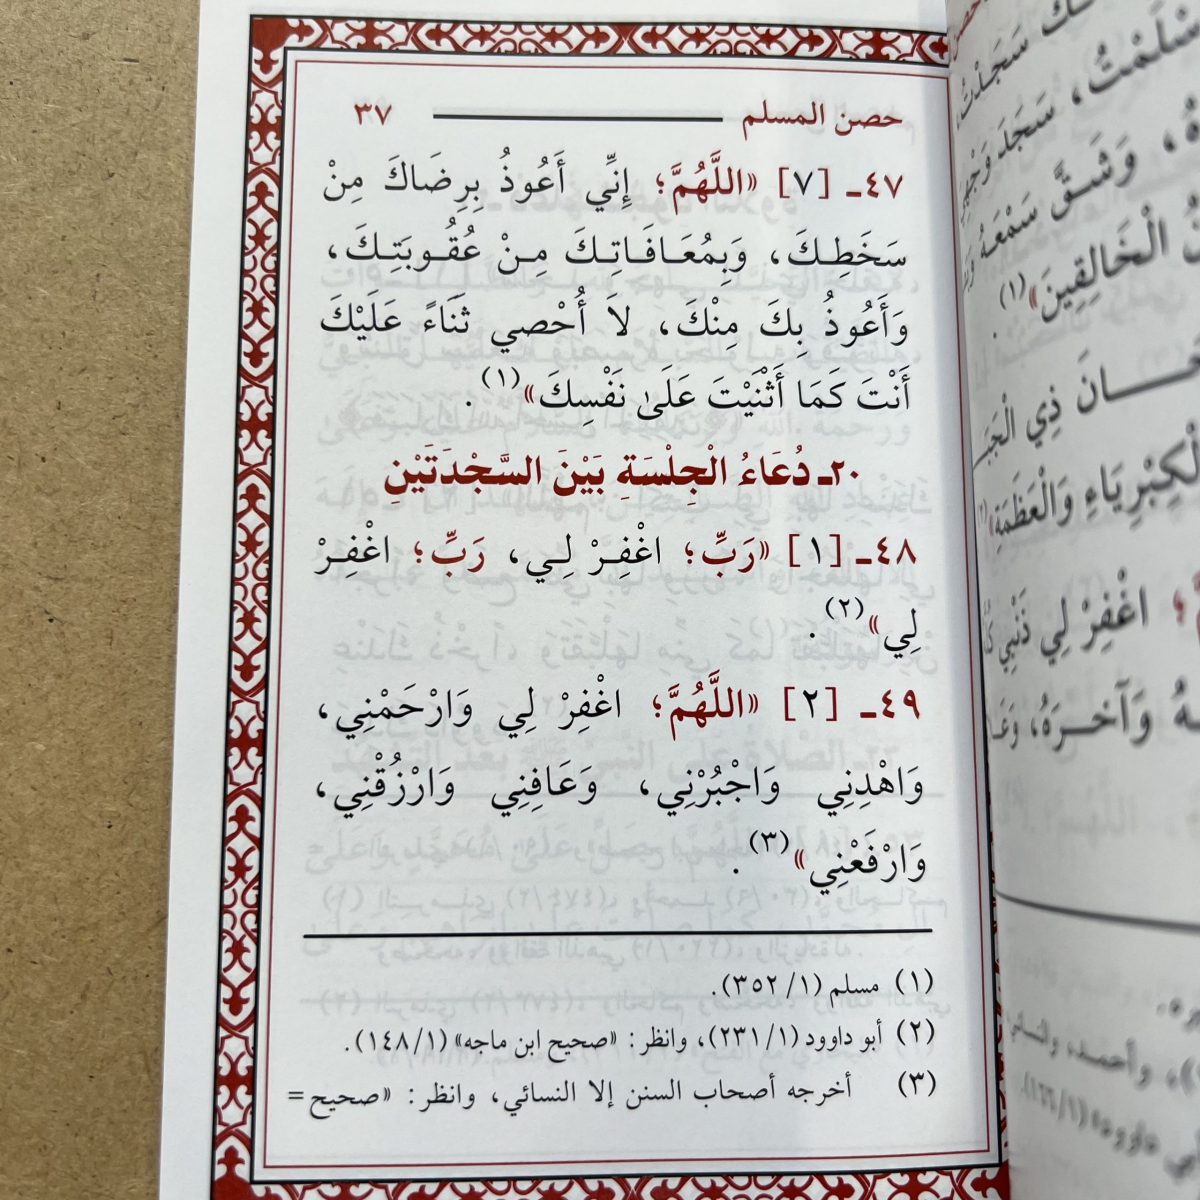 حصن المسلم ٣٧
٤٧ـ [٧] «اللَّهُمَّ؛ إِنِّي أَعُوذُ بِرِضَاكَ مِنْ
سَخَطِكَ، وَبِمُعَافَاتِكَ مِنْ عُقُوبَتِكَ،
وَأَعُوذُ بِكَ مِنْكَ، لاَ أُحْصي ثَنَاءً عَلَيْكَ
أَنْتَ كَمَا أَثْنَيْتَ عَلَىٰ نَفْسِكَ»(١) .
٢٠ـ دُعَاءُ الْجِلْسَةِ بَيْنَ السَّجْدَتَيْنِ
٤٨ـ [١] «رَبِّ؛ اغْفِرْ لِي، رَبِّ؛ اغْفِرْ
لِي»(٢) .
٤٩ـ [٢] «اللَّهُمَّ؛ اغْفِرْ لِي وَارْحَمْنِي،
وَاهْدِنِي وَاجْبُرْنِي، وَعَافِنِي وَارْزُقْنِي،
وَارْفَعْنِي»(٣) .
(١) مسلم (١/ ٣٥٢).
(٢) أبو داوود (١/ ٢٣١)، وانظر: «صحيح ابن ماجه» (١/ ١٤٨).
(٣) أخرجه أصحاب السنن إلا النسائي، وانظر: «صحيح =
سَجَدْتُ،
سَجَدَ وَجْهِيَ
وَشَقَّ سَمْعَهُ
الْخَالِقِينَ»(١) .
ذِي
وَالْعَظَمَةِ»
اغْفِرْ لِي ذَنْبِي
وَآخِرَهُ،
وأحمد، والنسائي